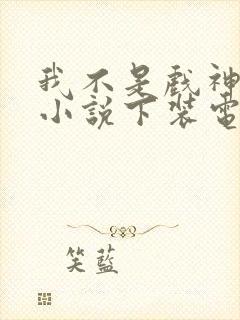 我不是戲神
小說下裝電
笑藍